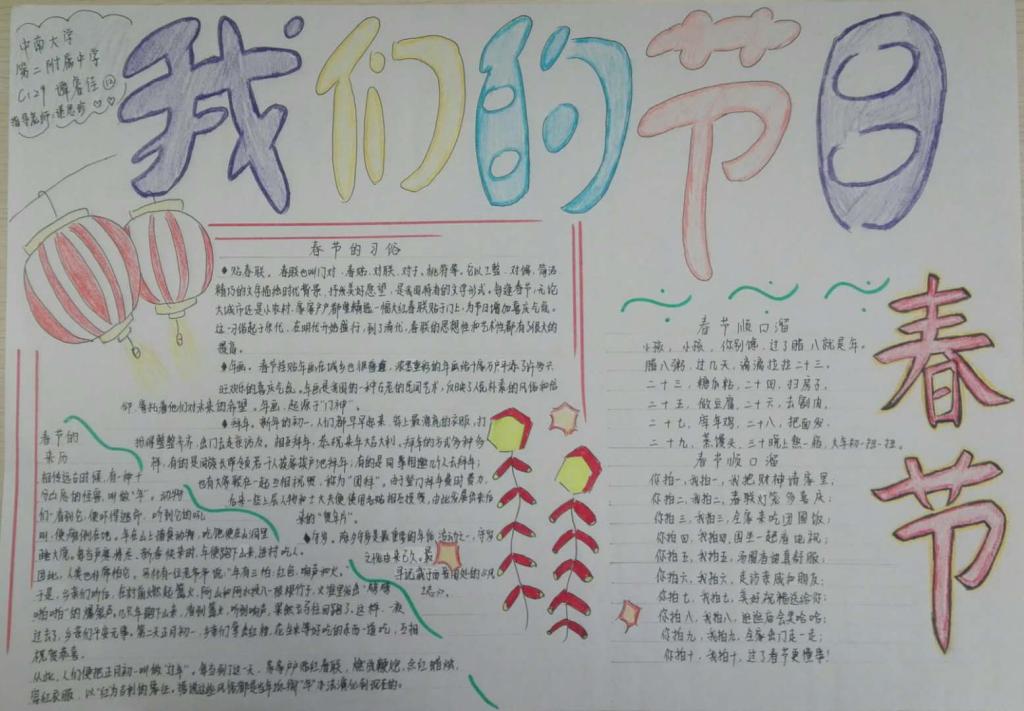 中南大学
第二附属中学
C129 谭睿佳 ⑫
指导老师:谌思
我们的节日
春节的习俗
●贴春联。春联也叫门对、春贴、对联、对子、桃符等。它以工整、对偶、简洁
精巧的文字描绘时代背景,抒发美好愿望,是我国特有的文学形式。每逢春节,无论
大城市还是小农村,家家户户都要精选一幅大红春联贴于门上,为节日增加喜庆气氛。
这一习俗起于宋代,在明代开始盛行,到了清代,春联的思想性和艺术性都有了很大的
提高。
●年画。春节挂贴年画在城乡也很普遍,浓墨重彩的年画给千家万户平添了许多兴
旺欢乐的喜庆气氛。年画是我国的一种古老的民间艺术,反映了人民朴素的风俗和信
仰,寄托着他们对未来的希望。年画,起源于“门神”。
●拜年。新年的初一,人们都早早起来,穿上最漂亮的衣服,打
扮得整整齐齐,出门去走亲访友,相互拜年,恭祝来年大吉大利。拜年的方式多种多
样,有的是同族长带领若干人挨家挨户地拜年;有的是同事相邀几个人去拜年;
也有大家聚在一起互相祝贺,称为“团拜”。由于登门拜年费时费力,
后来一些上层人物和士大夫便使用各贴相互投贺,由此发展出来后
来的“贺年片”。
●守岁。除夕守岁是最重要的年俗活动之一,守岁
之俗由来已久。最
早记载于西晋周处的《风
土志》。
春节的
来历
相传远古时候,有一种十
分凶恶的怪兽,叫做“年”。动物
们一看到它,便吓得逃命,听到它的吼
睡大觉。每当岁寒将尽,新春快来时,年便跑下山来,进村吃人。
因此,人类也非常怕它。
过去了,乡亲们平安无事。第二天正月初一,
祝贺恭喜。
从此,人们便把正月初一叫做“过年”。每当到了这一天,家家户户贴红春联,燃放鞭炮,点红蜡烛,
穿红衣服,以“红”为吉利的象征。
春节顺口溜
小孩,小孩,你别馋,过了腊八就是年。
腊八粥,过几天,漓漓拉拉二十三。
二十三,糖瓜粘,二十四,扫房子,
二十五,做豆腐,二十六,去割肉,
二十七,宰年鸡,二十八,把面发,
二十九,蒸馒头,三十晚上熬一宿,大年初一扭一扭。
春节顺口溜
你拍一,我拍一,我把财神请家里;
你拍二,我拍二,春联灯笼多喜庆;
你拍三,我拍三,全家来吃团圆饭;
你拍四,我拍四,围坐一起看电视;
你拍五,我拍五,汤圆香甜真舒服;
你拍六,我拍六,走访亲戚和朋友;
你拍七,我拍七,美好祝福送给你;
你拍八,我拍八,逛逛庙会笑哈哈;
你拍九,我拍九,全家出门走一走;
你拍十,我拍十,过了春节更懂事!
春节